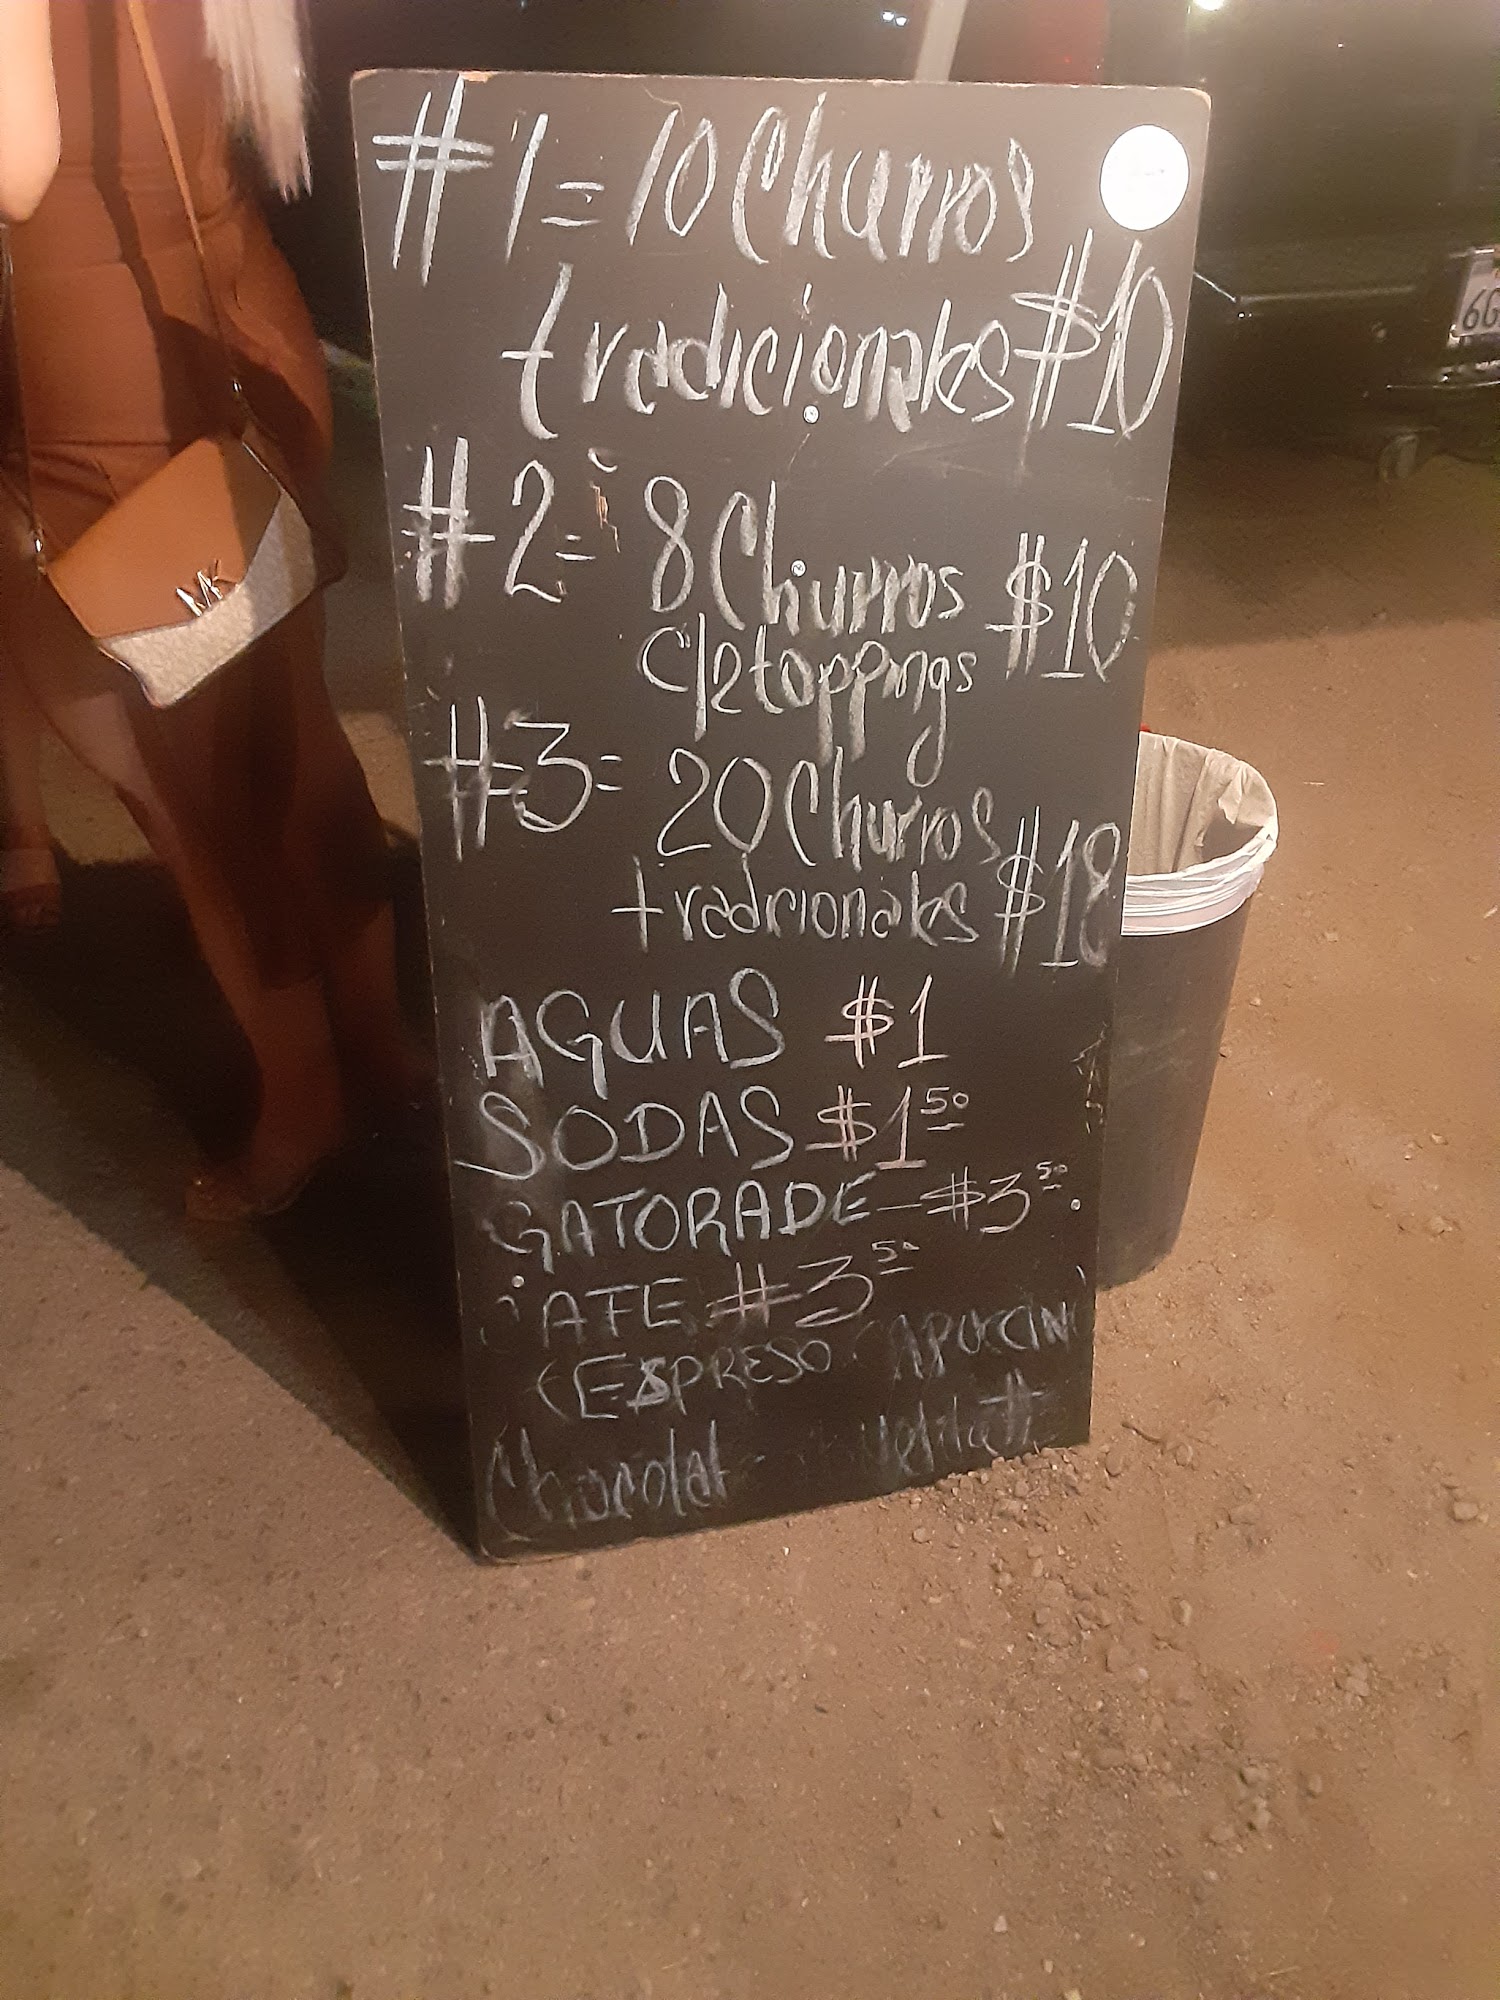 #1=10 Churros
tradicionales $10
#2= 8 Churros $10
c/2 toppings
#3= 20 Churros
tradicionales $18
AGUAS $1
SODAS $1 50
GATORADE - $3 50
CAFE #3 50
(ESPRESO CAPUCCINO
Chocolat
MK
6G